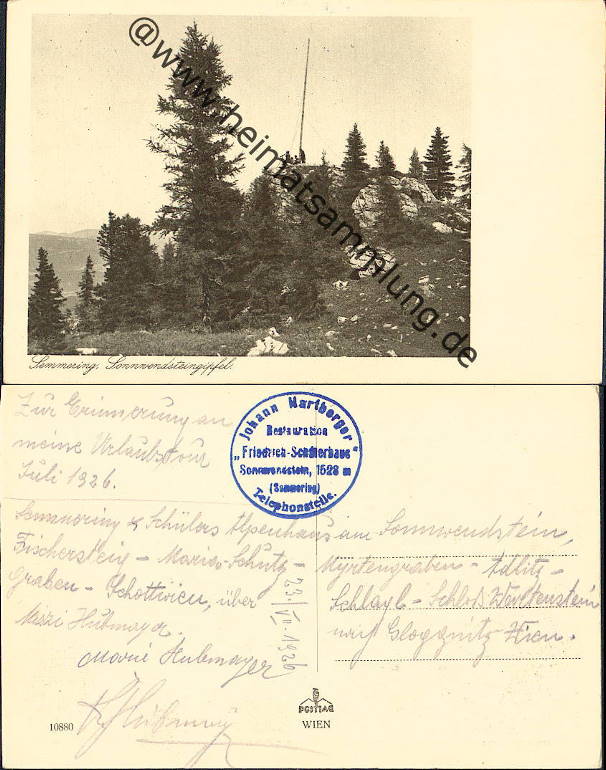 @www.heimatsammlung.de
Semmering, Sonnwendsteingipfel.
Zur Erinnerung an
meine Urlaubstour
Juli 1926.
Johann Hartberger
Restauration
„Friedrich-Schülerhaus"
Sonnwendstein, 1523 m
(Semmering)
Telephonstelle.
Semmering Schülers Alpenhaus am Sonnwendstein,
Fischersteig - Maria-Schutz -
Graben - Schottwien, über
Mizzi Hubmayer.
Marie Hubmayer
23./VII.1926
Myrtengraben - Adlitz-
Schlagl - Schloß Wartenstein
nach Gloggnitz Wien.
10880
POSTIAG
WIEN